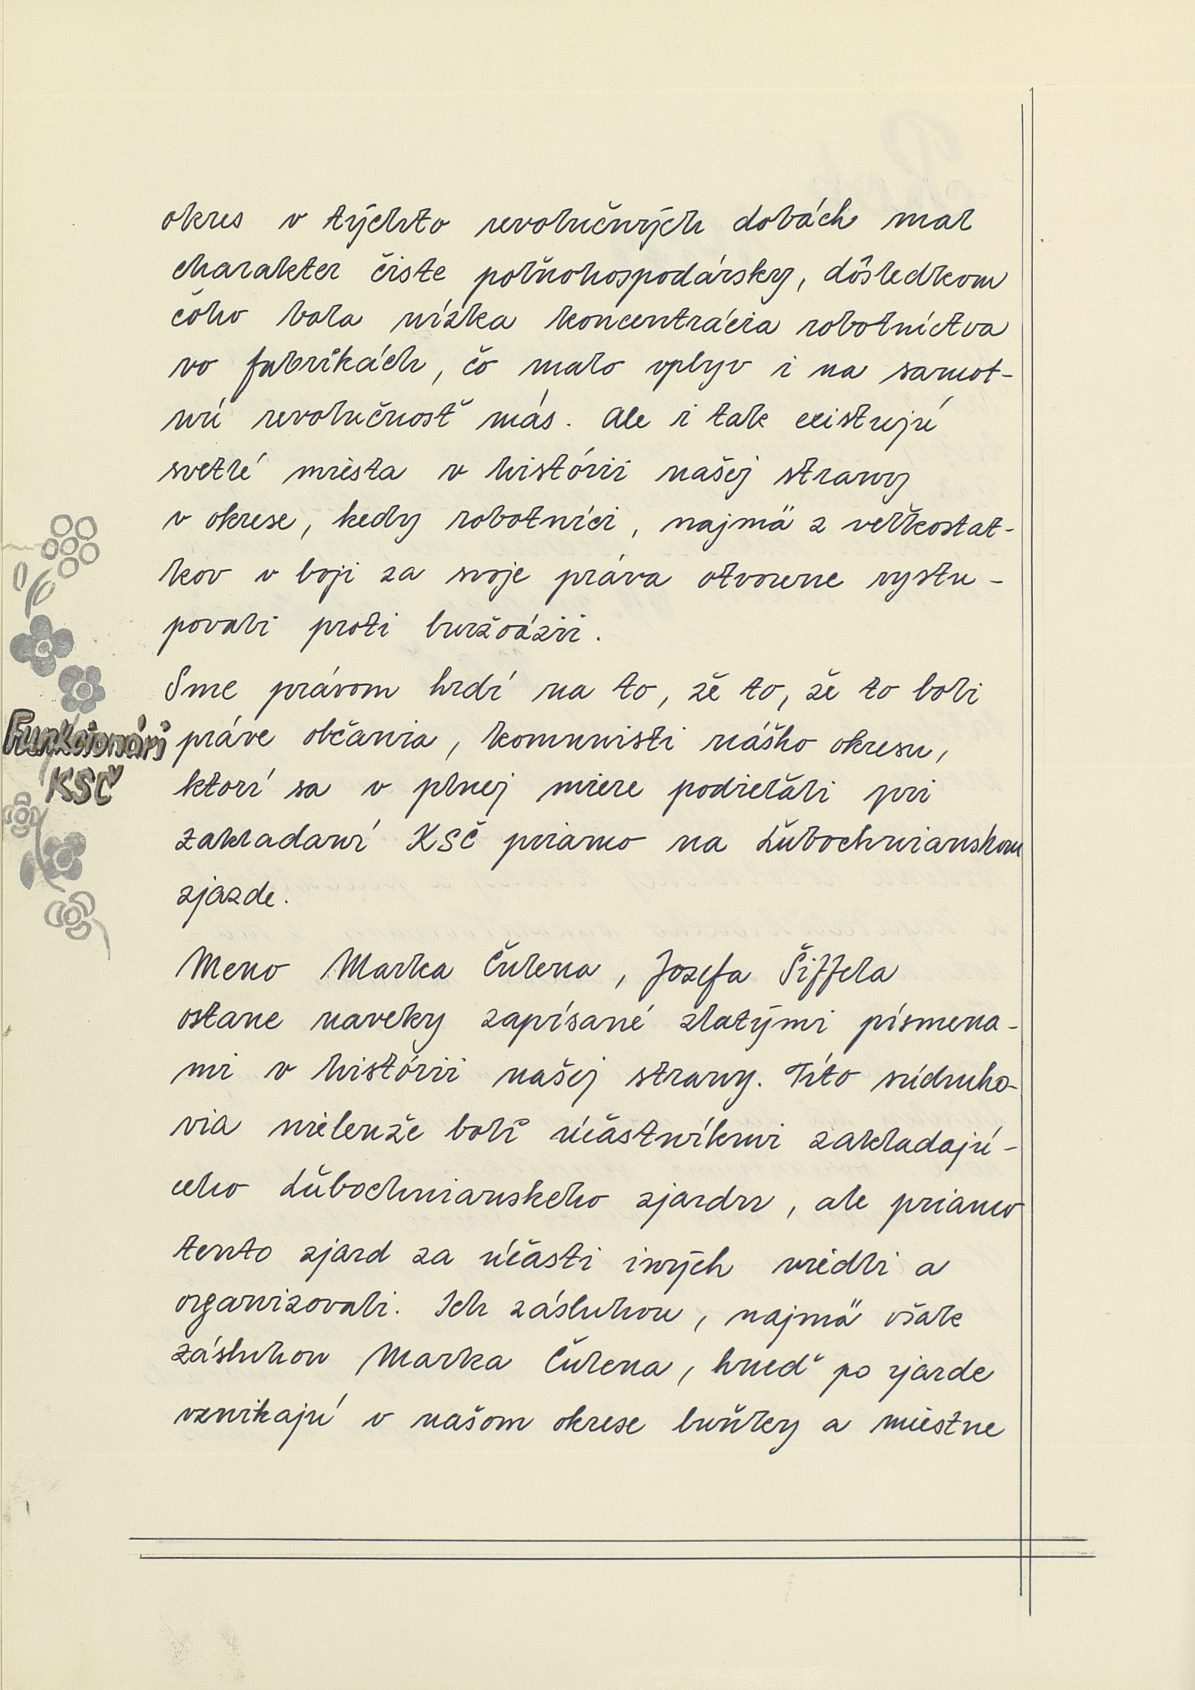 okres v týchto revolučných dobách mal
charakter čiste poľnohospodársky, dôsledkom
čoho bola nízka koncentrácia robotníctva
vo fabrikách, čo malo vplyv i na samot-
nú revolučnosť más. Ale i tak existujú
svetlé miesta v histórii našej strany
v okrese, kedy robotníci, najmä z veľkostat-
kov v boji za svoje práva otvorene vystu-
povali proti buržoázii.
Sme právom hrdí na to, že to, že to boli
Funkcionári
KSČ
práve občania, komunisti nášho okresu,
ktorí sa v plnej miere podieľali pri
zakladaní KSČ priamo na Ľubochnianskom
zjazde.
Meno Marka Čulena, Jozefa Šiffela
ostane naveky zapísané zlatými písmena-
mi v histórii našej strany. Títo súdruho-
via nielenže boli účastníkmi zakladajú-
ceho Ľubochnianskeho zjazdu, ale priamo
tento zjazd za účasti iných viedli a
organizovali. Ich zásluhou, najmä však
zásluhou Marka Čulena, hneď po zjazde
vznikajú v našom okrese buňky a miestne